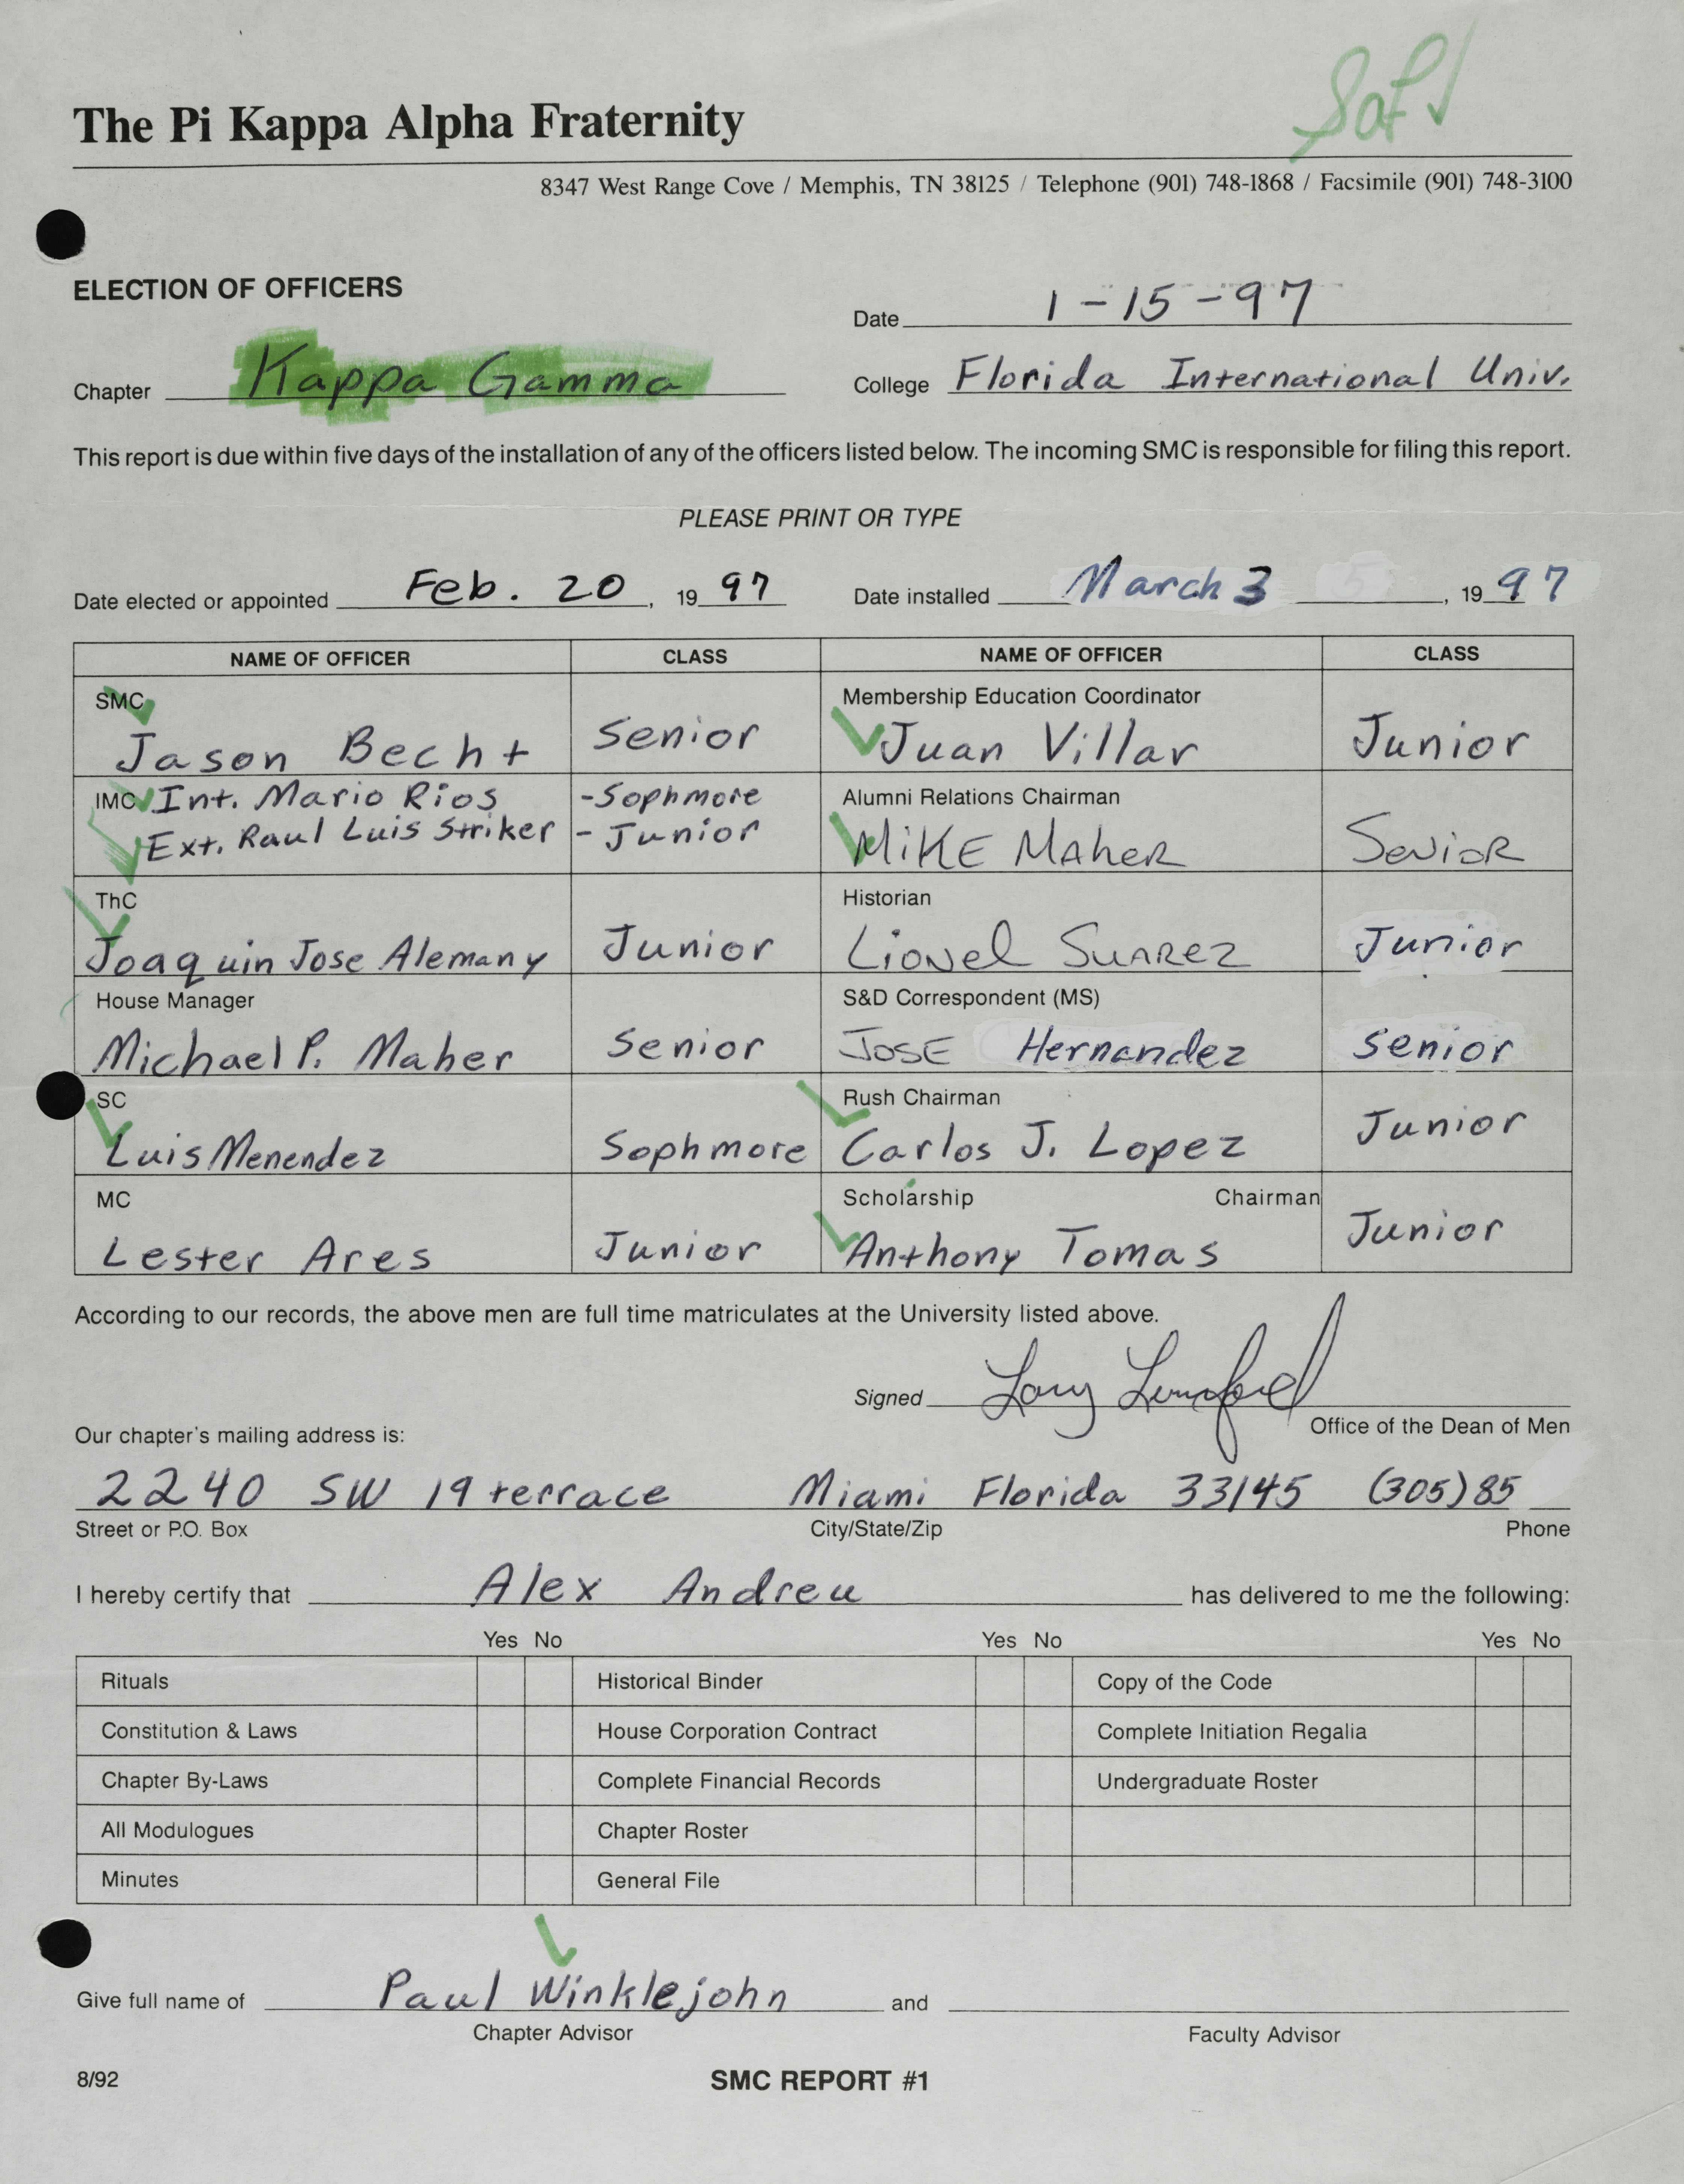 The Pi Kappa Alpha Fraternity
8347 West Range Cove / Memphis, TN 38125 / Telephone (901) 748-1868 / Facsimile (901) 748-3100
ELECTION OF OFFICERS
Date 1-15-97
Chapter Kappa Gamma College Florida International Univ.
This report is due within five days of the installation of any of the officers listed below. The incoming SMC is responsible for filing this report.
PLEASE PRINT OR TYPE
Date elected or appointed Feb. 20, 19 97 Date installed March 3, 19 97
NAME OF OFFICER CLASS NAME OF OFFICER CLASS
SMC Membership Education Coordinator
Jason Becht Senior Juan Villar Junior
IMC Int. Mario Rios -Sophmore Alumni Relations Chairman
Ext. Raul Luis Striker - Junior MiKE MAHER SENiOR
ThC Historian
Joaquin Jose Alemany Junior Lionel SuAREZ Junior
House Manager S&D Correspondent (MS)
Michael P. Maher Senior JOSE Hernandez senior
SC Rush Chairman
Luis Menendez Sophmore Carlos J. Lopez Junior
MC Scholarship Chairman
Lester Ares Junior Anthony Tomas Junior
According to our records, the above men are full time matriculates at the University listed above.
Signed
Office of the Dean of Men
Our chapter's mailing address is:
2240 SW 19 terrace Miami Florida 33145 (305)85
Street or P.O. Box City/State/Zip Phone
I hereby certify that Alex Andreu has delivered to me the following:
Yes No Yes No Yes No
Rituals Historical Binder Copy of the Code
Constitution & Laws House Corporation Contract Complete Initiation Regalia
Chapter By-Laws Complete Financial Records Undergraduate Roster
All Modulogues Chapter Roster
Minutes General File
Give full name of Paul Winklejohn and
Chapter Advisor Faculty Advisor
8/92 SMC REPORT #1